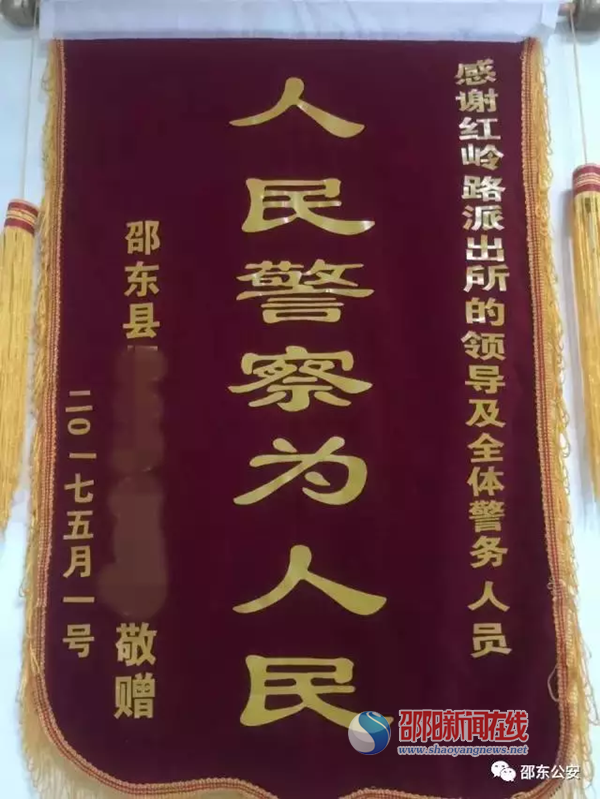 感谢红岭路派出所的领导及全体警务人员
人民警察为人民
邵东县
敬赠
二〇一七五月一号
邵阳新闻在线
www.shaoyangnews.net
邵东公安